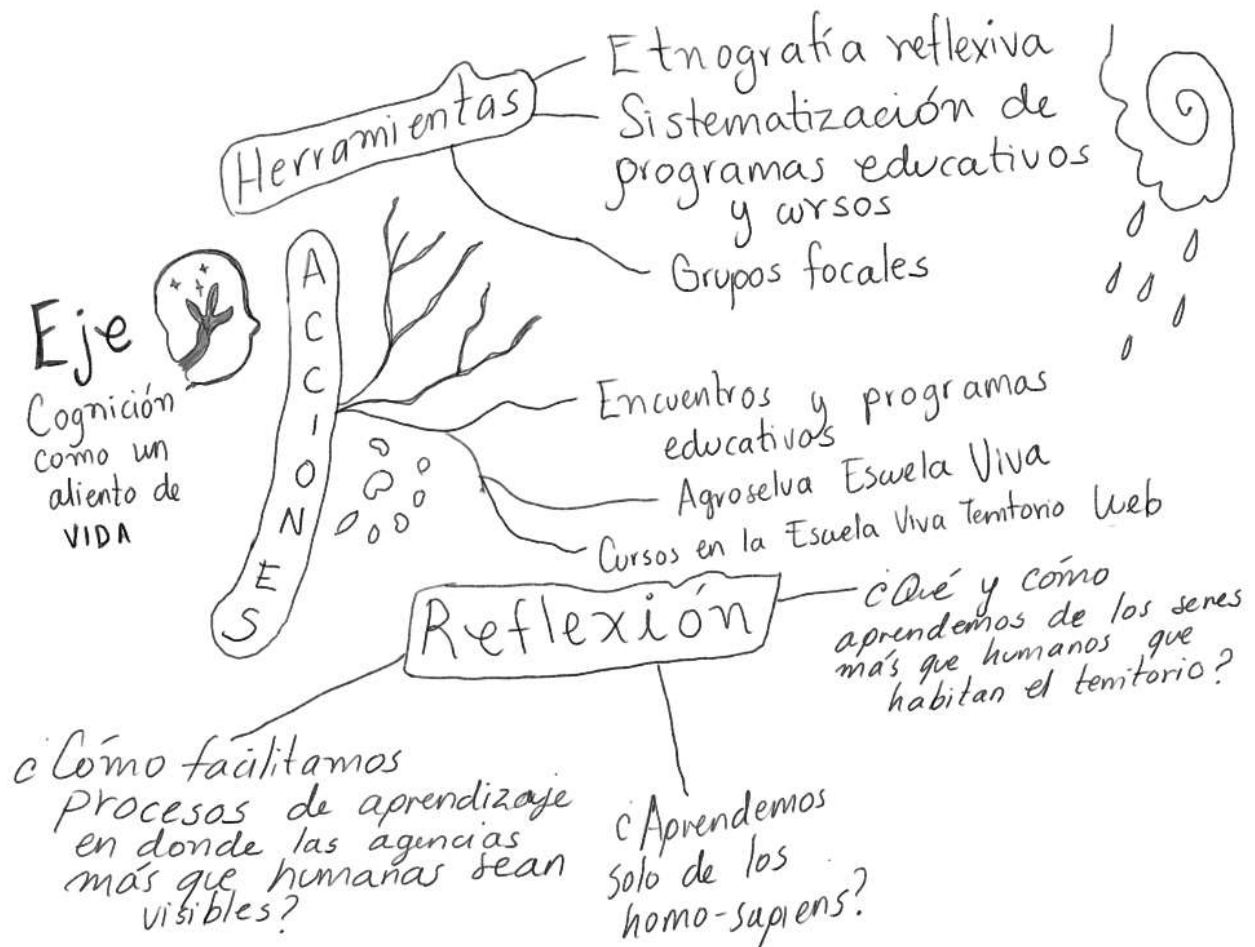 Herramientas
Etnografía reflexiva
Sistematización de
programas educativos
y cursos
Grupos focales
Eje
Cognición
como un
aliento de
VIDA
ACCIONES
Encuentros y programas
educativos
Agroselva Escuela Viva
Cursos en la Escuela Viva Territorio Web
Reflexión
¿Qué y cómo
aprendemos de los seres
más que humanos que
habitan el territorio?
¿Cómo facilitamos
procesos de aprendizaje
en donde las agencias
más que humanas sean
visibles?
¿Aprendemos
solo de los
homo-sapiens?